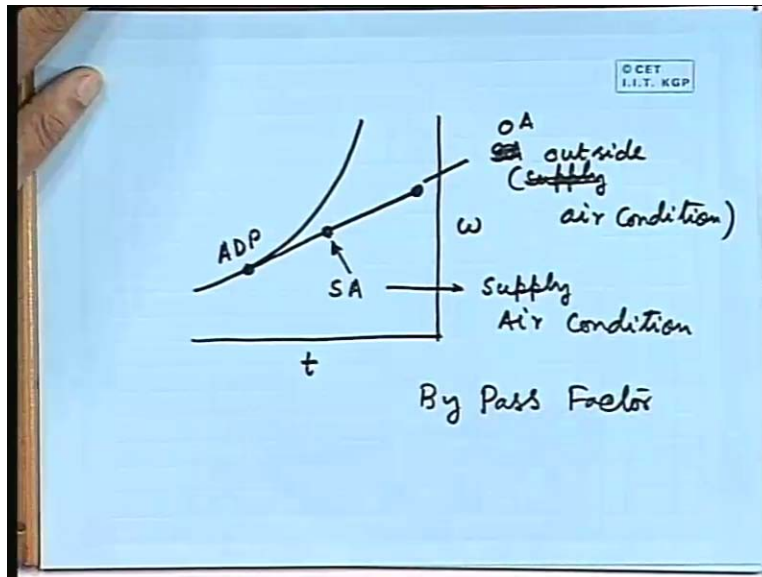 © CET
I.I.T. KGP
OA
outside
(supply
air condition)
ω
ADP
SA
supply
Air Condition
t
By Pass Factor